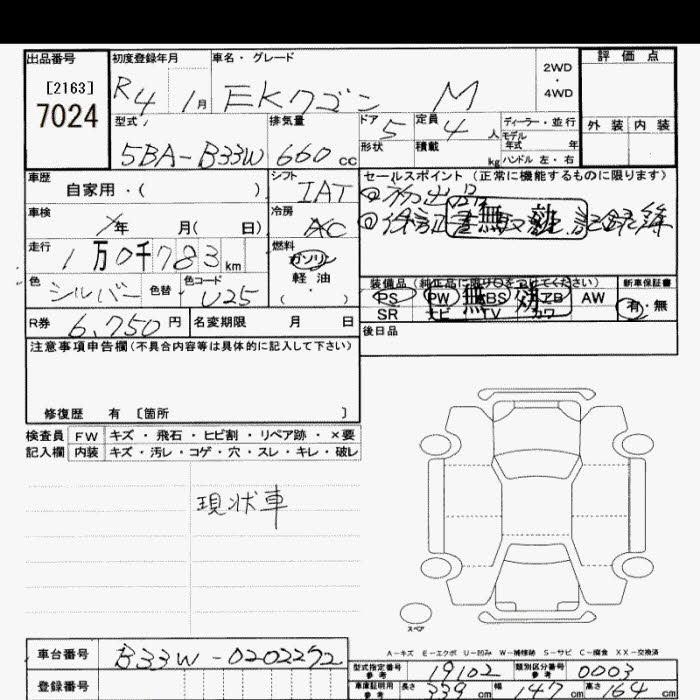 出品番号 初度登録年月 車名・グレード 評価点
[2163] R4 1月 EKワゴン M 2WD・4WD
7024 外装 内装
型式 排気量 ドア 定員 ディーラー・並行
5BA-B33W 660cc 5 4人 モデル年式 年
形状 積載 kg ハンドル 左・右
車歴 シフト セールスポイント(正常に機能するものに限ります)
自家用・( ) IAT
車検 冷房 無効 記録簿
年 月( 日) AC
走行 燃料
1万0千783km ガソリン
色 色替 色コード 軽油 装備品(純正品に限り○をつけてください) 新車保証書
シルバー U25 ( ) PS PW ABS エアB AW 有・無
無効
SR ナビ TV カワ
R券 6,750円 名変期限 月 日 後日品
注意事項申告欄(不具合内容等は具体的に記入して下さい)
修復歴 有 [箇所 ]
検査員 FW キズ・飛石・ヒビ割・リペア跡・×要
記入欄 内装 キズ・汚レ・コゲ・穴・スレ・キレ・破レ
現状車
スペア
A-キズ E-エクボ U-凹み W-補修跡 S-サビ C-腐食 XX-交換済
車台番号 B33W-0202292 型式指定番号 参考 19102 類別区分番号 参考 0003
登録番号 車庫証明用 参考 長さ 339cm 幅 147cm 高さ 164cm